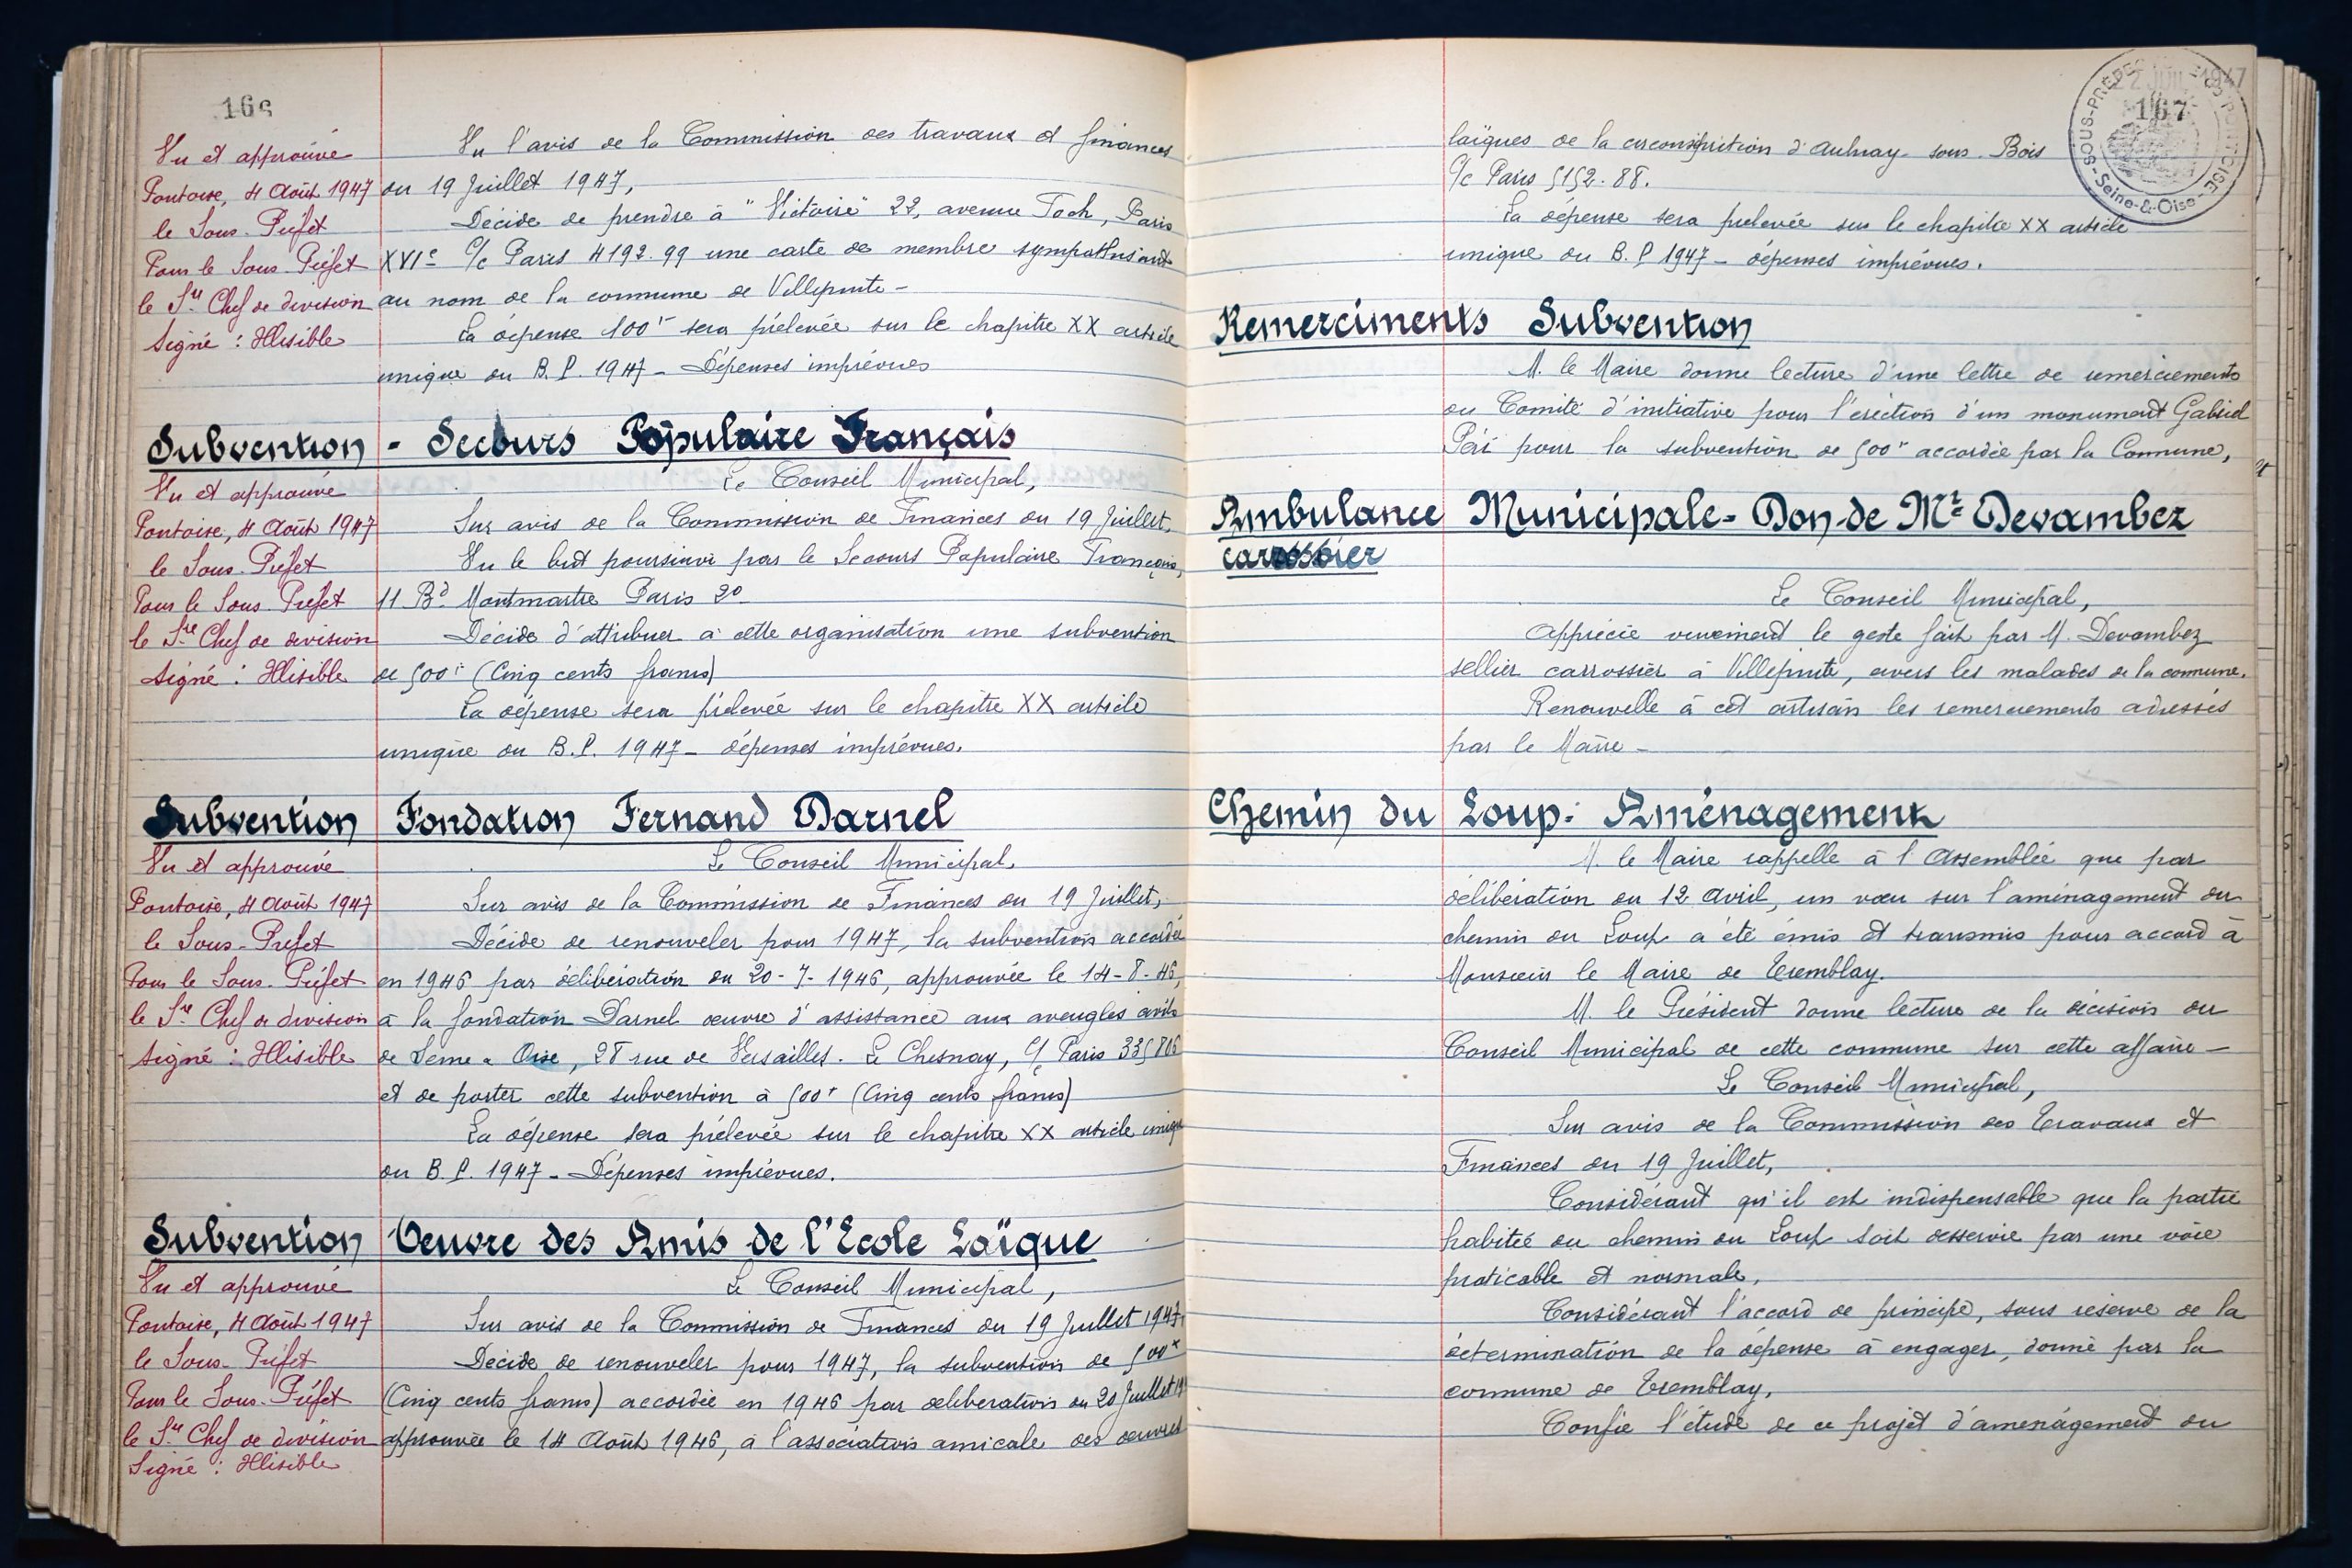 166
Vu et approuvé
Pontoise, 4 Août 1947
le Sous-Préfet
Pour le Sous-Préfet
le S.re Chef de division
Signé : Illisible
Vu l'avis de la Commission des travaux et finances
du 19 Juillet 1947,
Décide de prendre à "Victoire" 22, avenue Foch, Paris
XVIe C/c Paris 4192.99 une carte de membre sympathisant
au nom de la commune de Villepinte -
La dépense 100fr sera prélevée sur le chapitre XX article
unique du B.P. 1947 - Dépenses imprévues
Subvention - Secours Populaire Français
Vu et approuvé
Pontoise, 4 Août 1947
le Sous-Préfet
Pour le Sous-Préfet
le S.re Chef de division
Signé : Illisible
Le Conseil Municipal,
Sur avis de la Commission de Finances du 19 Juillet,
Vu le but poursuivi par le Secours Populaire Français,
11 Bd Montmartre Paris 20
Décide d'attribuer à cette organisation une subvention
de 500fr (Cinq cents francs)
La dépense sera prélevée sur le chapitre XX article
unique du B.P. 1947 - dépenses imprévues.
Subvention Fondation Fernand Darnel
Vu et approuvé
Pontoise, 4 Août 1947
le Sous-Préfet
Pour le Sous-Préfet
le S.re Chef de division
Signé : Illisible
Le Conseil Municipal,
Sur avis de la Commission de Finances du 19 Juillet,
Décide de renouveler pour 1947, la subvention accordée
en 1946 par délibération du 20-7-1946, approuvée le 14-8-46,
à la fondation Darnel œuvre d'assistance aux aveugles civils
de Seine & Oise, 28 rue de Versailles. Le Chesnay, C/c Paris 335816
et de porter cette subvention à 500f (Cinq cents francs)
La dépense sera prélevée sur le chapitre XX article unique
du B.P. 1947 - Dépenses imprévues.
Subvention Oeuvre des Amis de l'Ecole Laïque
Vu et approuvé
Pontoise, 4 Août 1947
le Sous-Préfet
Pour le Sous-Préfet
le S.re Chef de division
Signé : Illisible
Le Conseil Municipal,
Sur avis de la Commission de Finances du 19 Juillet 1947,
Décide de renouveler pour 1947, la subvention de 500f
(Cinq cents francs) accordée en 1946 par délibération du 20 Juillet
approuvée le 14 Août 1946, à l'association amicale des œuvres
SOUS-PRÉFECTURE DE PONTOISE
Seine-&-Oise
22 JUIL 1947
167
laïques de la circonscription d'Aulnay-sous-Bois
C/c Paris 5152.88.
La dépense sera prélevée sur le chapitre XX article
unique du B.P 1947 - dépenses imprévues.
Remerciments Subvention
M. le Maire donne lecture d'une lettre de remerciements
du Comité d'initiative pour l'érection d'un monument Gabriel
Péri pour la subvention de 500fr accordée par la Commune,
Ambulance Municipale - Don de Mr Devambez
carrossier
Le Conseil Municipal,
Apprécie vivement le geste fait par M. Devambez
sellier carrossier à Villepinte, avers les malades de la commune.
Renouvelle à cet artisan les remerciements adressés
par le Maire -
Chemin du Loup: Aménagement
M. le Maire rappelle à l'Assemblée que par
délibération du 12 Avril, un vœu sur l'aménagement du
chemin du Loup a été émis et transmis pour accord à
Monsieur le Maire de Tremblay.
M. le Président donne lecture de la décision du
Conseil Municipal de cette commune sur cette affaire -
Le Conseil Municipal,
Sur avis de la Commission des Travaux et
Finances du 19 Juillet,
Considérant qu'il est indispensable que la partie
habitée du chemin du Loup soit desservie par une voie
praticable et normale,
Considérant l'accord de principe, sous réserve de la
détermination de la dépense à engager, donné par la
commune de Tremblay,
Confie l'étude de ce projet d'aménagement du